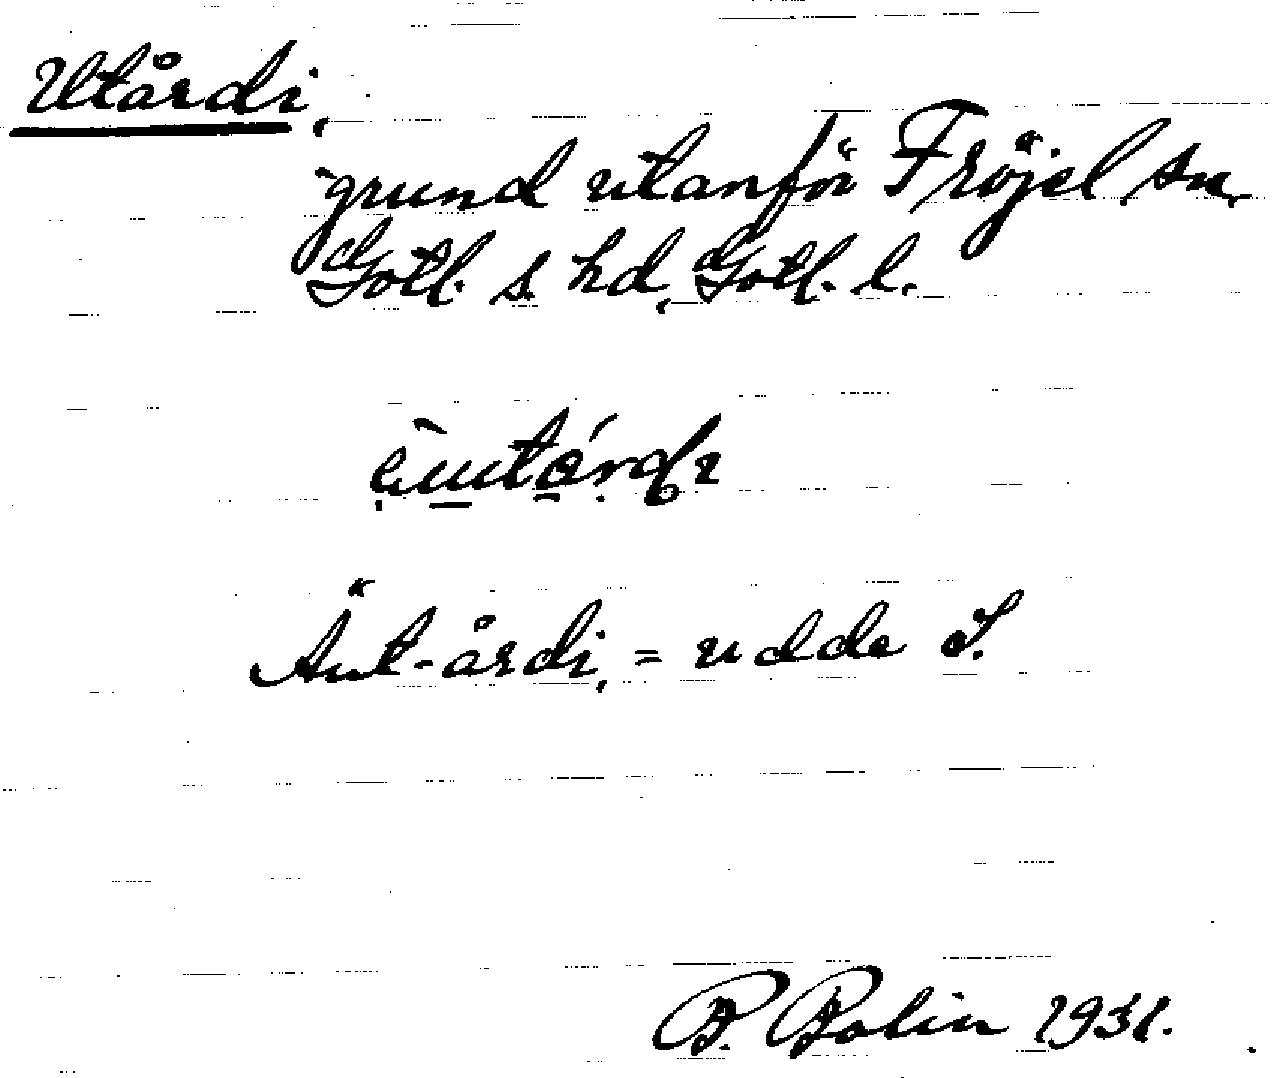 Utårdi,
grund utanför Fröjel sn,
Gotl. s. hd, Gotl. l.
Äut-årdi, = udde S.
B. Bolin 1931.